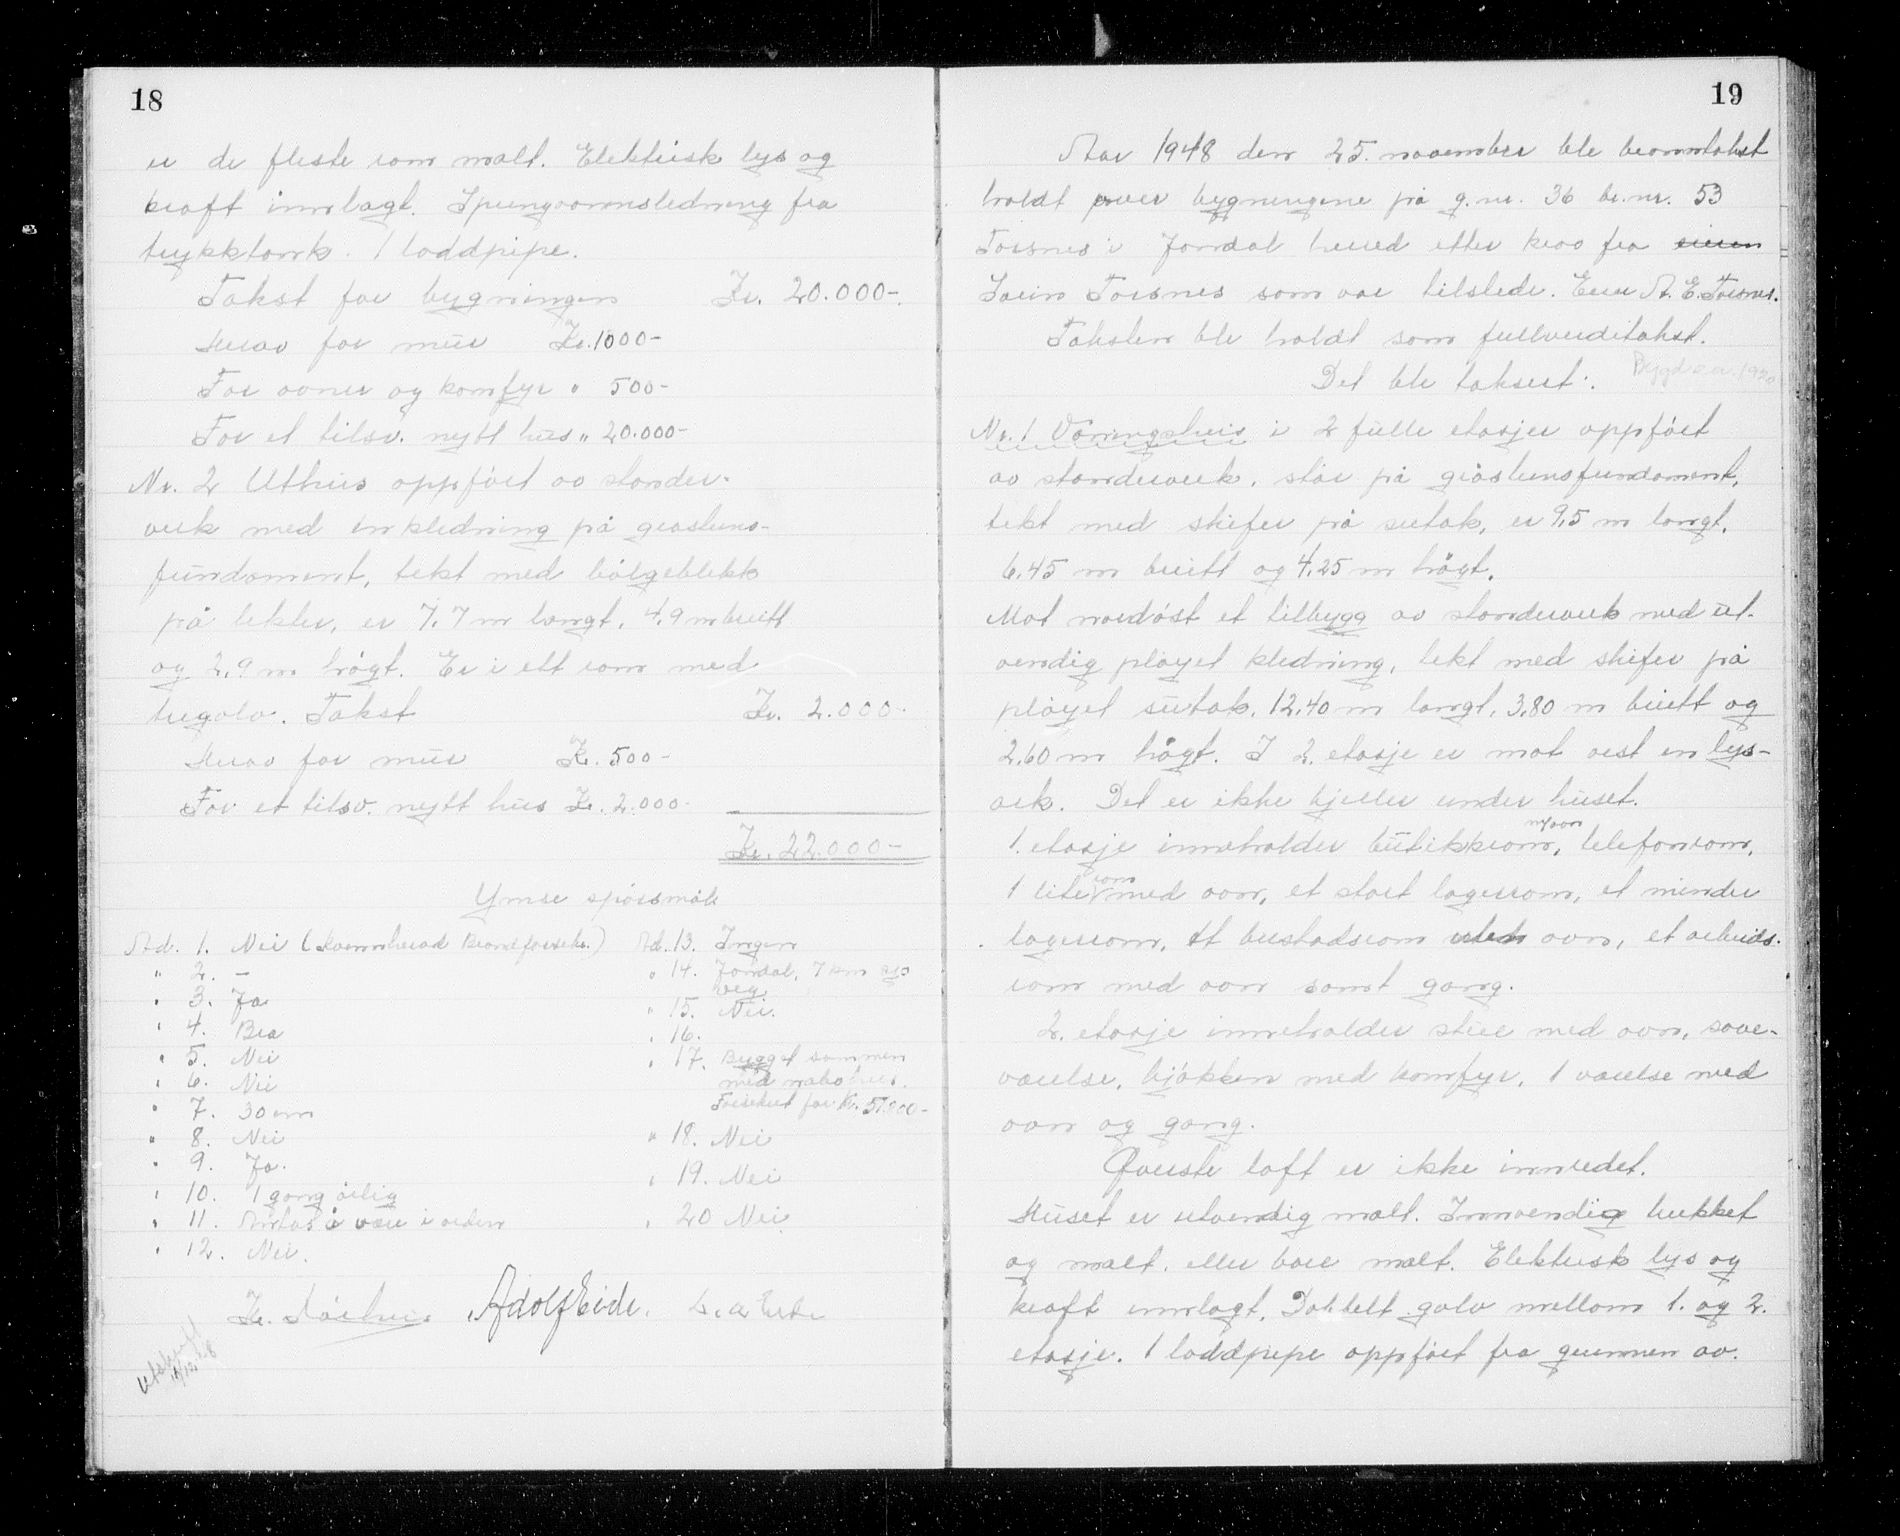 18
er de fleste rom malt. Elektrisk lys og
kraft innlagt. Springvannsledning fra
trykktank. 1 loddpipe.
Takst for bygningen Kr. 20.000-
Herav for mur Kr. 1000-
For ovner og komfyr " 500-
For et tilsv. nytt hus " 20.000-
Nr. 2 Uthus oppført av stender-
verk med enkledning på gråstens-
fundament, tekt med bølgeblekk
på lekter, er 7,7 m langt, 4,9 m breitt
og 2,9 m høgt. Er i ett rom med
tregolv. Takst Kr. 2.000-
Herav for mur Kr. 500-
For et tilsv. nytt hus Kr. 2.000-
Kr. 22.000-
Ymse spørsmål
Ad. 1. Nei (Kvinnherad Brandforsikr.)
" 2. -
" 3. Ja
" 4. Bra
" 5. Nei
" 6. Nei
" 7. 30 cm
" 8. Nei
" 9. Ja.
" 10. 1 gang årlig
" 11. Antas å være i orden
" 12. Nei.
Ad. 13. Ingen
" 14. Jondal, 7 km
veg
" 15. Nei.
" 16.
" 17. Bygget sammen
med nabohus.
Forsikret for Kr. 51.800-
" 18. Nei
" 19. Nei
" 20 Nei
Kr. Adolf Eide.
Utskrift
19
Aar 1948 den 25. november ble branntakst
holdt over bygningene på g.nr. 36 br.nr. 53
Torsnes i Jondal herred etter krav fra eieren
Torsnes som var tilstede. Eier A. E. Torsnes.
Taksten ble holdt som fullverditakst.
Det ble taksert: Bygd ca. 1920
Nr. 1 Våningshus i 2 fulle etasjer oppført
av stenderverk, står på gråstensfundament,
tekt med skifer på sutak, er 9,5 m langt,
6,45 m breitt og 4,25 m høgt.
Mot nordøst et tilbygg av stenderverk med ut-
vendig pløyet kledning, tekt med skifer på
pløyet sutak, 12,40 m langt, 3,80 m breitt og
2,60 m høgt. I 2. etasje er mot vest en lys-
ark. Det er ikke kjeller under huset.
1. etasje inneholder butikkrom m/ovn, telefonrom,
1 lite rom med ovn, et stort lagerrom, et mindre
lagerrom, et brustadsrom uten ovn, et arbeids-
rom med ovn samt gang.
2. etasje inneholder stue med ovn, sove-
værelse, kjøkken med komfyr, 1 værelse med
ovn og gang.
Øverste loft er ikke innredet.
Huset er utvendig malt. Innvendig trekket
og malt, eller bare malt. Elektrisk lys og
kraft innlagt. Dobbelt golv mellom 1. og 2.
etasje. 1 loddpipe oppført fra grunnen av.